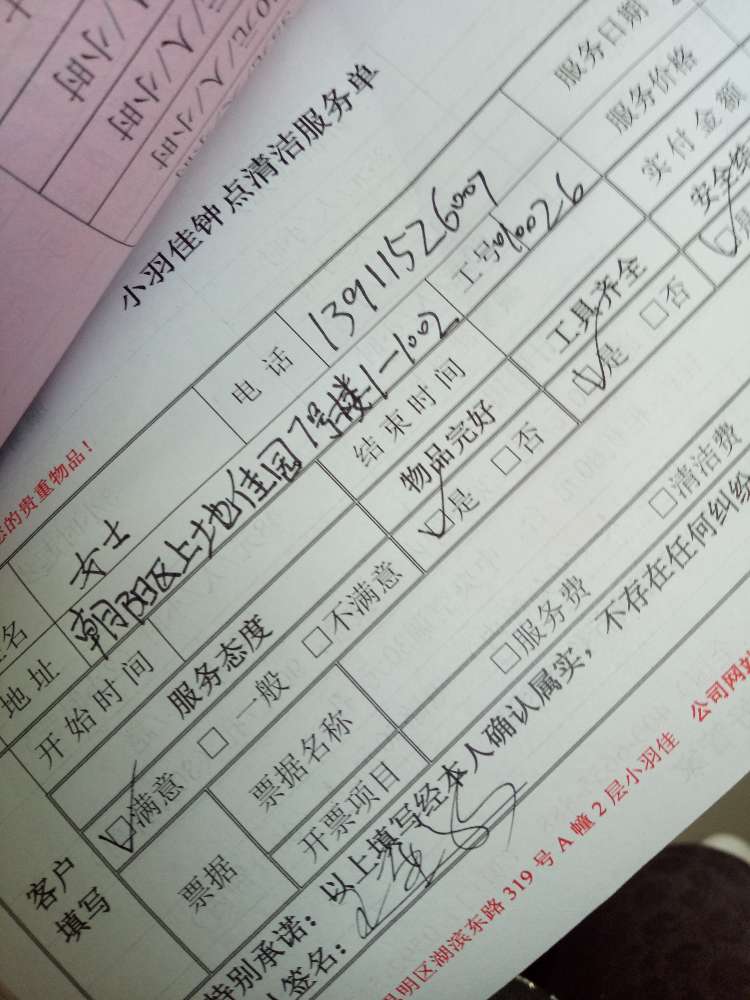 元/人/小时
元/人/小时
元/人/小时
小羽佳钟点清洁服务单
您的贵重物品！
名 女士 电话 13911526007 服务日期
地址 朝阳区上地佳园7号楼1-1002 工号 服务价格
开始时间 结束时间 实付金额
服务态度 物品完好 工具齐全 安全
☑满意 □一般 □不满意 ☑是 □否 ☑是 □否 ☑是
客户填写
票据 票据名称 □服务费 □清洁费
开票项目
特别承诺：以上填写经本人确认属实，不存在任何纠纷
签名：
明区湖滨东路 319 号 A 幢 2 层小羽佳 公司网站